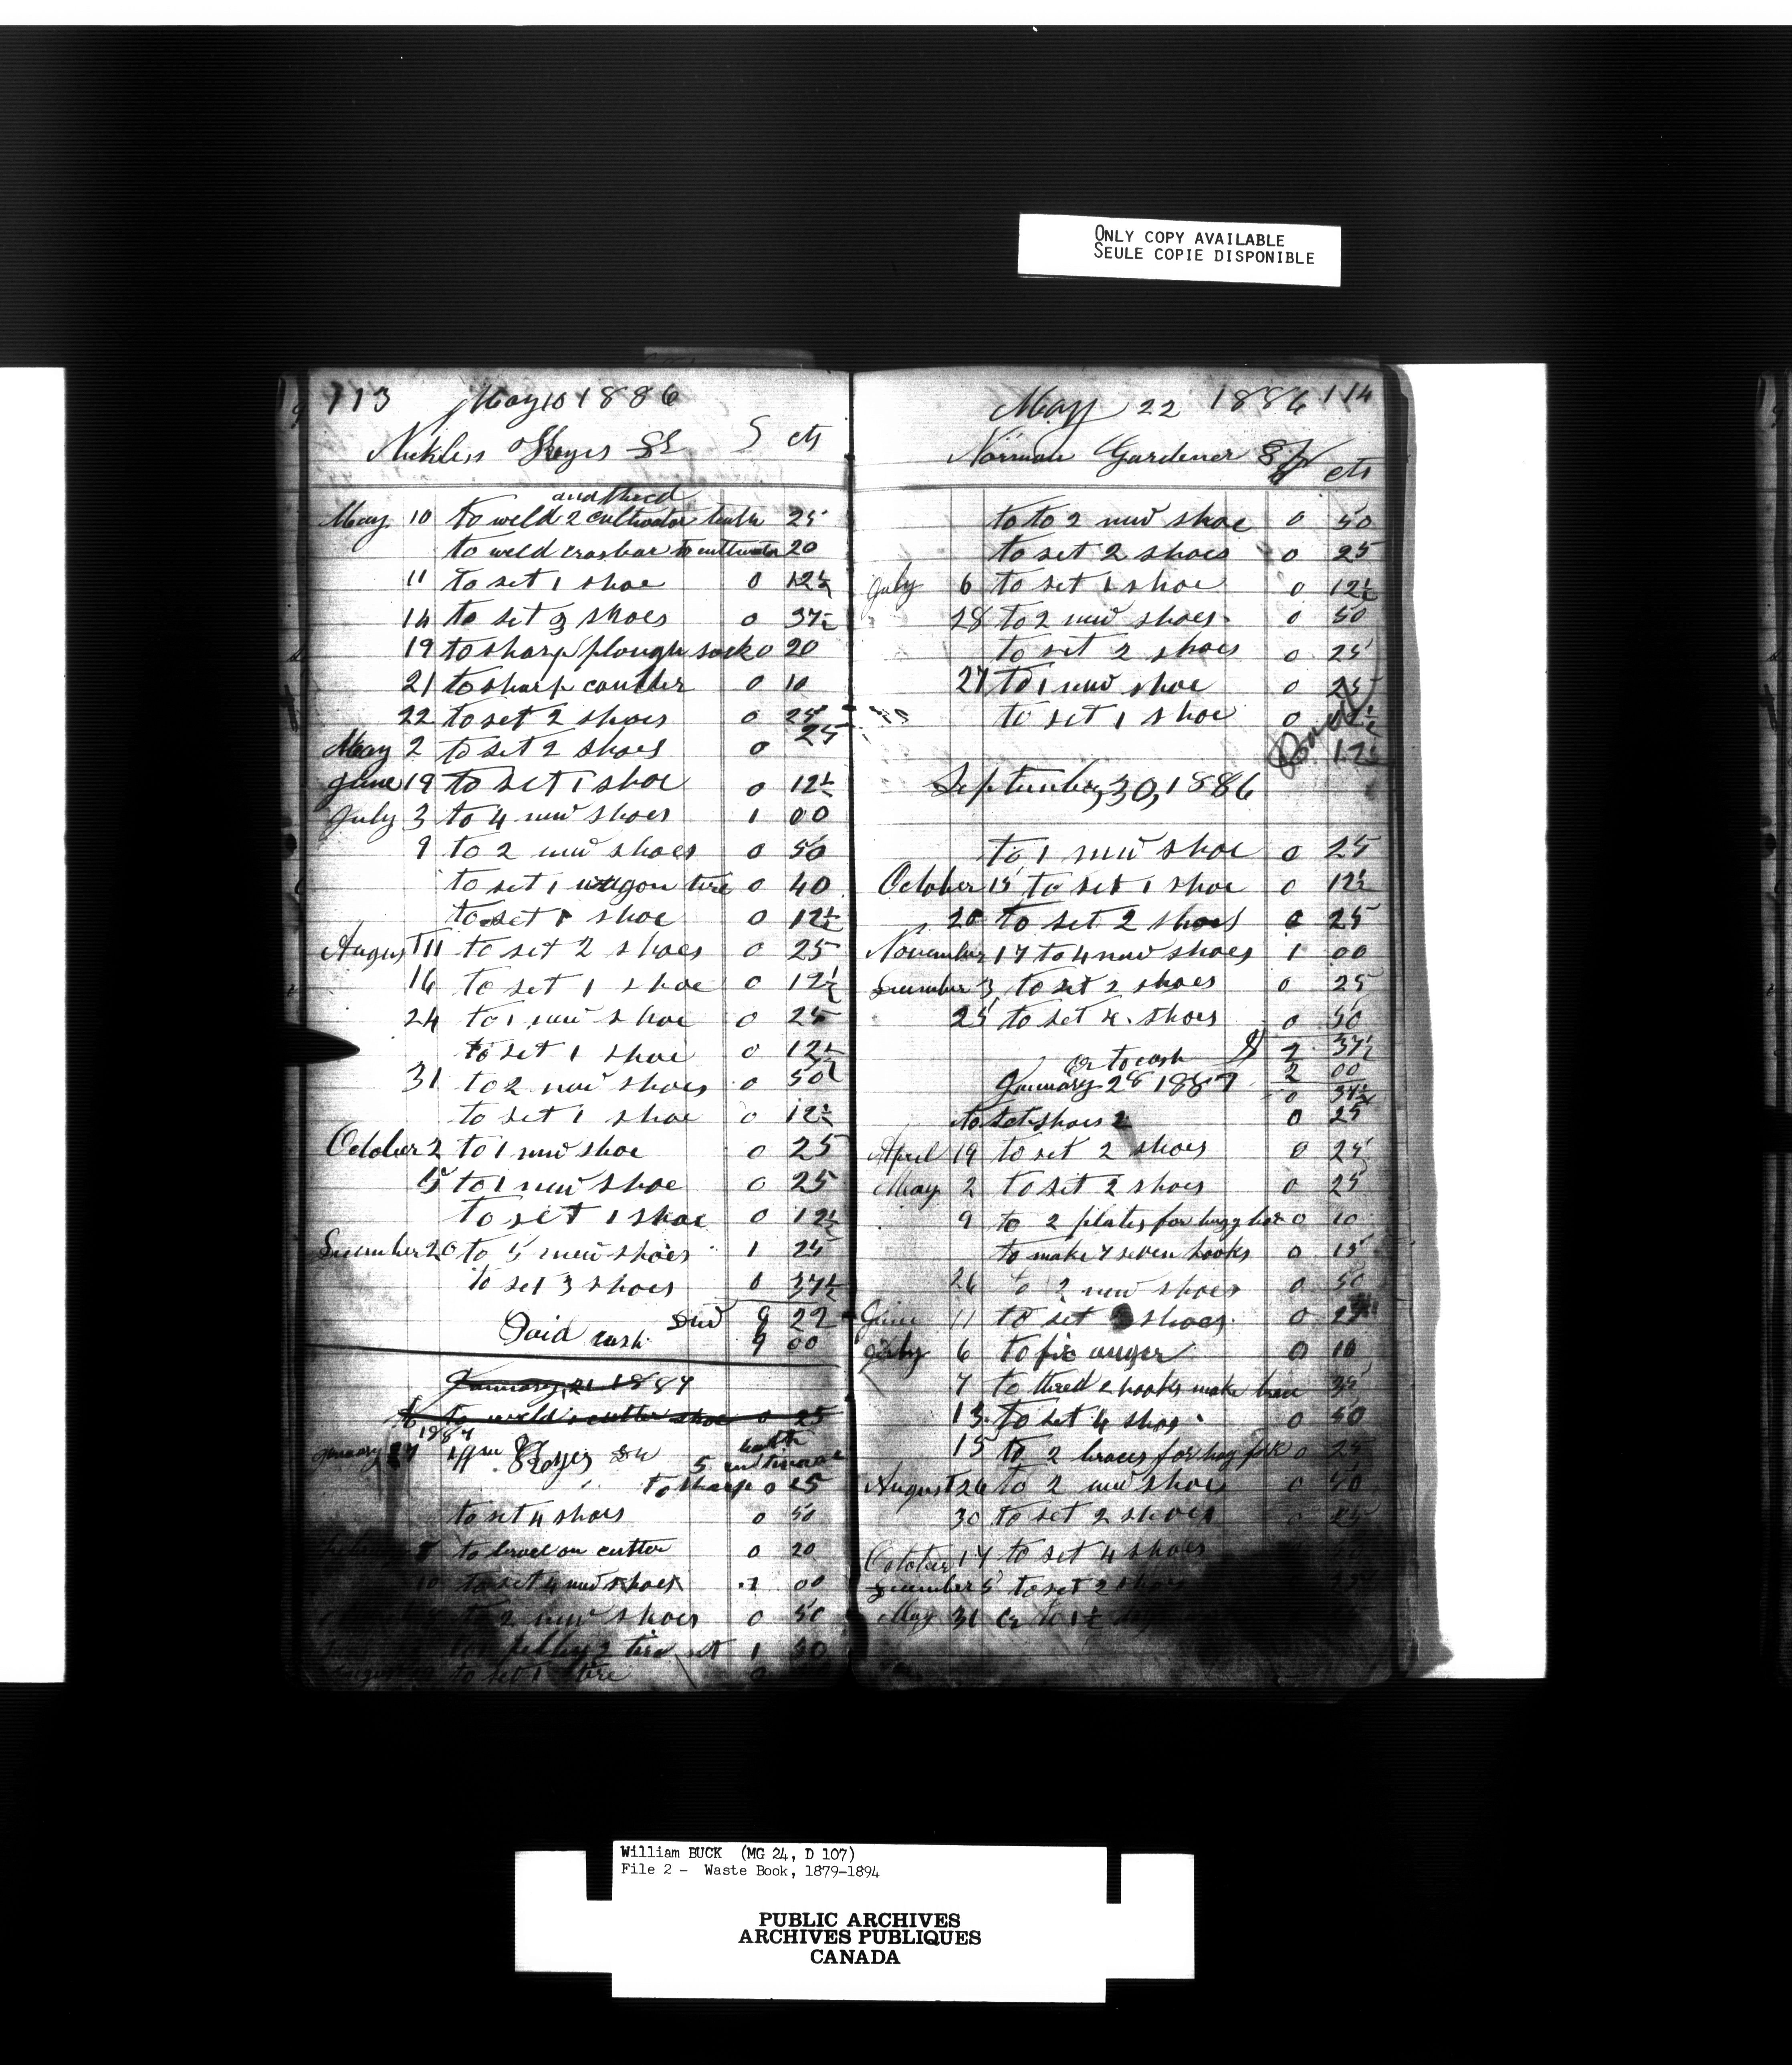 ONLY COPY AVAILABLE
SEULE COPIE DISPONIBLE
113 May 10 1886
Keyes cts
and thred
May 10 to weld 2 cultivator teeth 25
to weld crosbar to cultivator 20
11 to set 1 shoe 0 12½
14 to set 3 shoes 0 37½
19 to sharp plough sock 0 20
21 to sharp coulter 0 10
22 to set 2 shoes 0 25
May 2 to set 2 shoes 0 25
June 19 to set 1 shoe 0 12½
July 3 to 4 new shoes 1 00
9 to 2 new shoes 0 50
to set 1 wagon tire 0 40
to set 1 shoe 0 12½
August 11 to set 2 shoes 0 25
16 to set 1 shoe 0 12½
24 to 1 new shoe 0 25
to set 1 shoe 0 12½
31 to 2 new shoes 0 50
to set 1 shoe 0 12½
October 2 to 1 new shoe 0 25
5 to 1 new shoe 0 25
to set 1 shoe 0 12½
December 20 to 5 new shoes 1 25
to set 3 shoes 0 37½
Due 9 22
Paid cash 9 00
January 21 1887
to weld cutter shoe 0 25
1887
January 27 Keyes
5
to sharp 0 25
to set 4 shoes 0 50
to brace on cutter 0 20
10 to set 4 new shoes 1 00
to 2 new shoes 0 50
tire
to set 1 tire 0
May 22 1886 114
Norman Gardener cts
to to 2 new shoe 0 50
to set 2 shoes 0 25
July 6 to set 1 shoe 0 12½
28 to 2 new shoes 0 50
to set 2 shoes 0 25
27 to 1 new shoe 0 25
to set 1 shoe 0
September 30, 1886
to 1 new shoe 0 25
October 15 to set 1 shoe 0 12½
20 to set 2 shoes 0 25
November 17 to 4 new shoes 1 00
December 3 to set 2 shoes 0 25
25 to set 4 shoes 0 50
$ 2 37½
cr to cash 2 00
January 28 1887 0 37½
to set shoes 2 0 25
April 19 to set 2 shoes 0 25
May 2 to set 2 shoes 0 25
9 to 2 plates for buggy 0 10
to make 7 seven hooks 0 15
26 to 2 new shoes 0 50
June 11 to set 2 shoes 0 25
July 6 to fix auger 0 10
7 to thred 2 hooks make 35
13 to set 4 shoes 0 50
15 to 2 braces for hay fork 0 25
August 26 to 2 new shoes 0 50
30 to set 2 shoes 25
October 17 to set 4 shoes
December 5 to set 2 shoes
May 31 Cr to 1½ days
William BUCK (MG 24, D 107)
File 2 - Waste Book, 1879-1894
PUBLIC ARCHIVES
ARCHIVES PUBLIQUES
CANADA